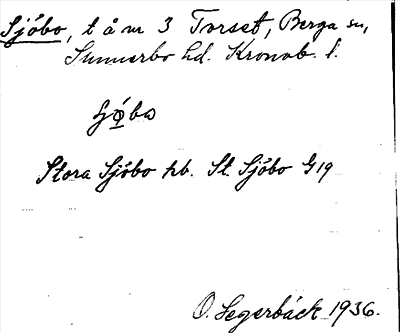 Sjöbo, t å nr 3 Torset, Berga sn,
Sunnerbo hd. Kronob. l.
Stora Sjöbo hb. St. Sjöbo G19
O. Segerbäck 1936.